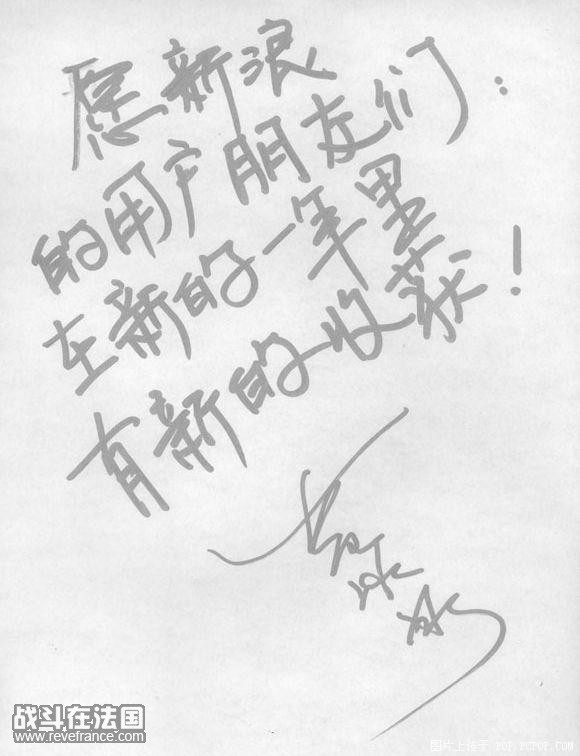 愿新浪
的用户朋友们:
在新的一年里
有新的收获!
战斗在法国
www.revefrance.com
图片上传于
POP.PCPOP.COM